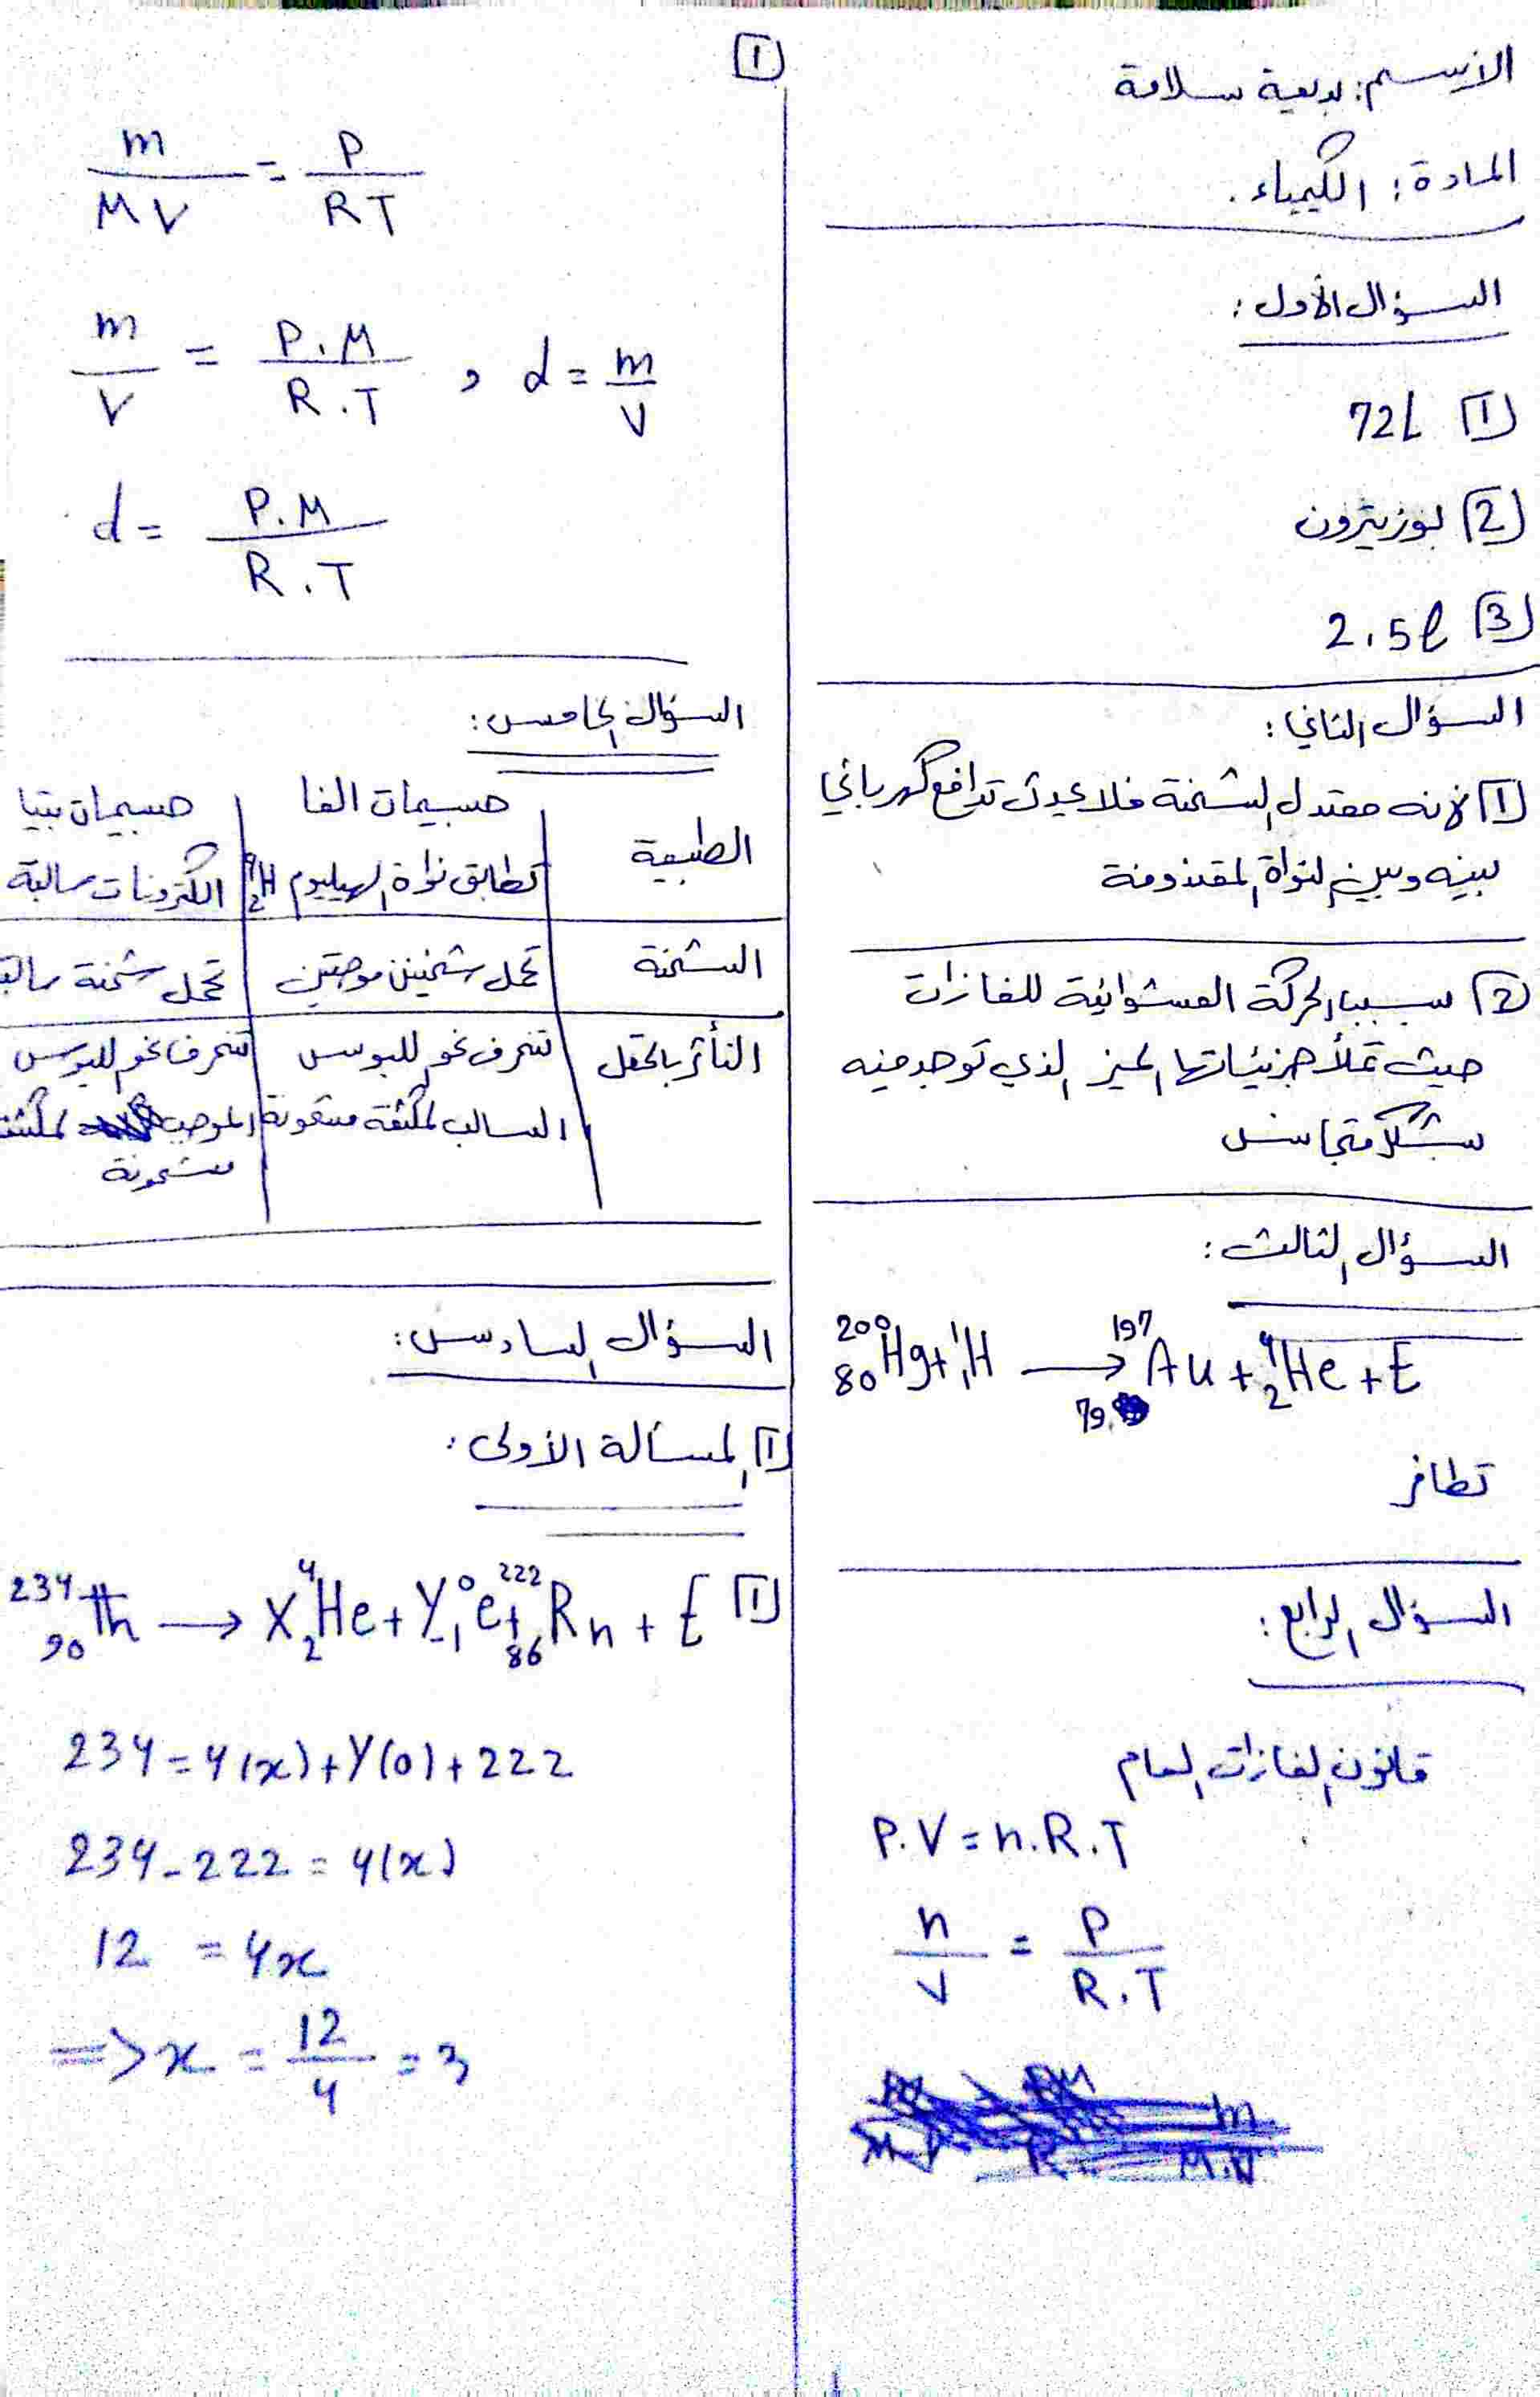 1
الإسم: بديعية سلامة
المادة: الكيمياء.
السؤال الأول:
1 72L
2 بوزيترون
3 2.5l
السؤال الثاني:
1 لأنه معتدل الشحنة فلا يحدث تدافع كهربائي
بينه وبين النواة المقذوفة
2 بسبب الحركة العشوائية للغازات
حيث تملأ جزيئاتها الحيز الذي توجد فيه
بشكل متجانس
السؤال الثالث:
²⁰⁰₈₀Hg + ¹₁H → ¹⁹⁷₇₉Au + ⁴₂He + E
تطافر
السؤال الرابع:
قانون الغازات العام
P.V = n.R.T
n/V = P/R.T
m/MV = P/RT
m/V = P.M/R.T , d = m/V
d = P.M/R.T
السؤال الخامس:
جسيمات الفا جسيمات بيتا
الطبيعة تطابق نواة الهيليوم ⁴₂H الكترونات سالبة
الشحنة تحمل شحنتين موجبتين تحمل شحنة سالبة
التأثر بالحقل تنحرف نحو اللبوس تنحرف نحو اللبوس
السالب لمكثفة مشحونة الموجب لمكثفة
مشحونة
السؤال السادس:
1 المسألة الأولى:
1 ²³⁴₉₀Th → X⁴₂He + Y⁰₋₁e + ²²²₈₆Rn + E
234 = 4(x) + Y(0) + 222
234 - 222 = 4(x)
12 = 4x
=> x = 12/4 = 3